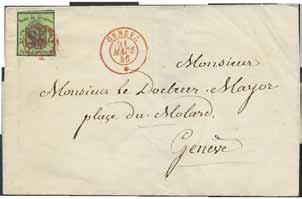 GENEVE
21
MARS
46
Monsieur
Monsieur le Docteur Mayor
place du Molard.
Genève